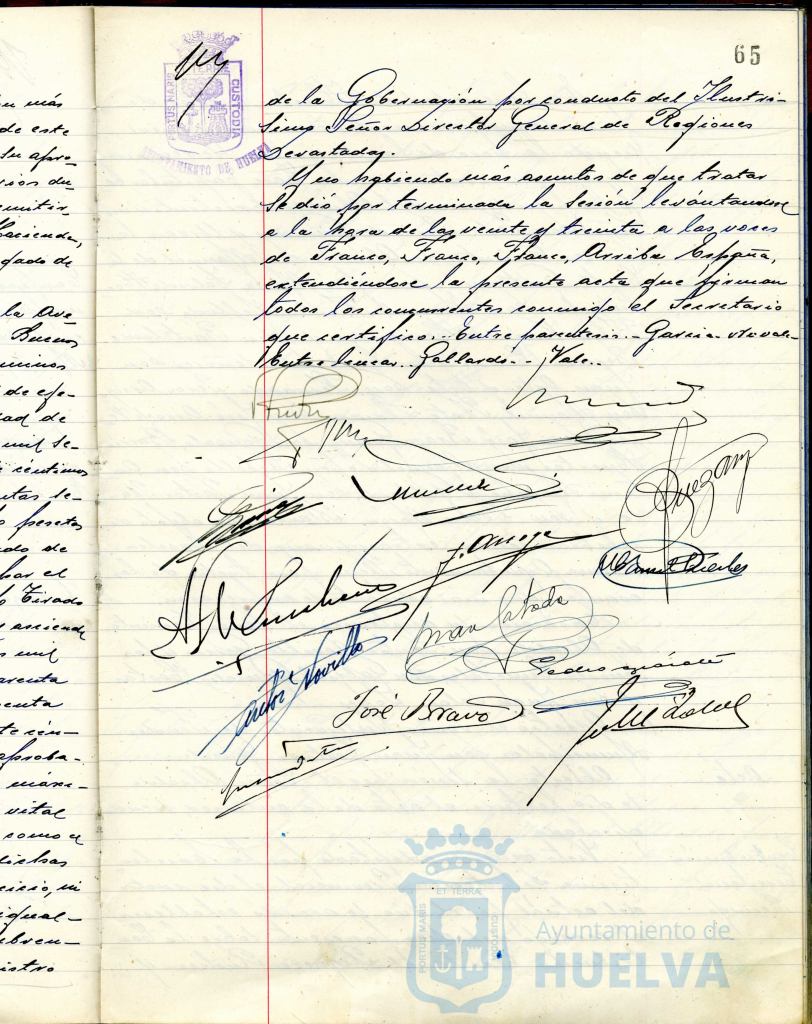 65
PORTUS MARIS
ET TERRÆ
CUSTODIA
AYUNTAMIENTO DE HUELVA
de la Gobernación por conducto del Ilustri-
simo Señor Director General de Regiones
Devastadas.
Y no habiendo más asuntos de que tratar
se dió por terminada la sesión levántandose
a la hora de las veinte y treinta a las voces
de Franco, Franco, Franco, Arriba España,
extendiéndose la presente acta que firman
todos los concurrentes conmigo el Secretario
que certifico.- Entre parentesis.- Garcia.- No vale.-
Entre lineas.- Gallardo.- Vale.-
José Bravo
n más
de este
su apro-
rios du-
mitir-
Hacienda,
gado de
la Ave
Buenos
minos
de efe-
dad de
mil se-
céntimos
ntas se-
pesetas
do de
por el
Tirado
asciende
mil
arenta
enta
te cén-
aproba-
máxi-
vital
como a
dichas
cicio, ni
igual-
istro
ET TERRÆ
PORTUS MARIS
CUSTODIA
Ayuntamiento de
HUELVA